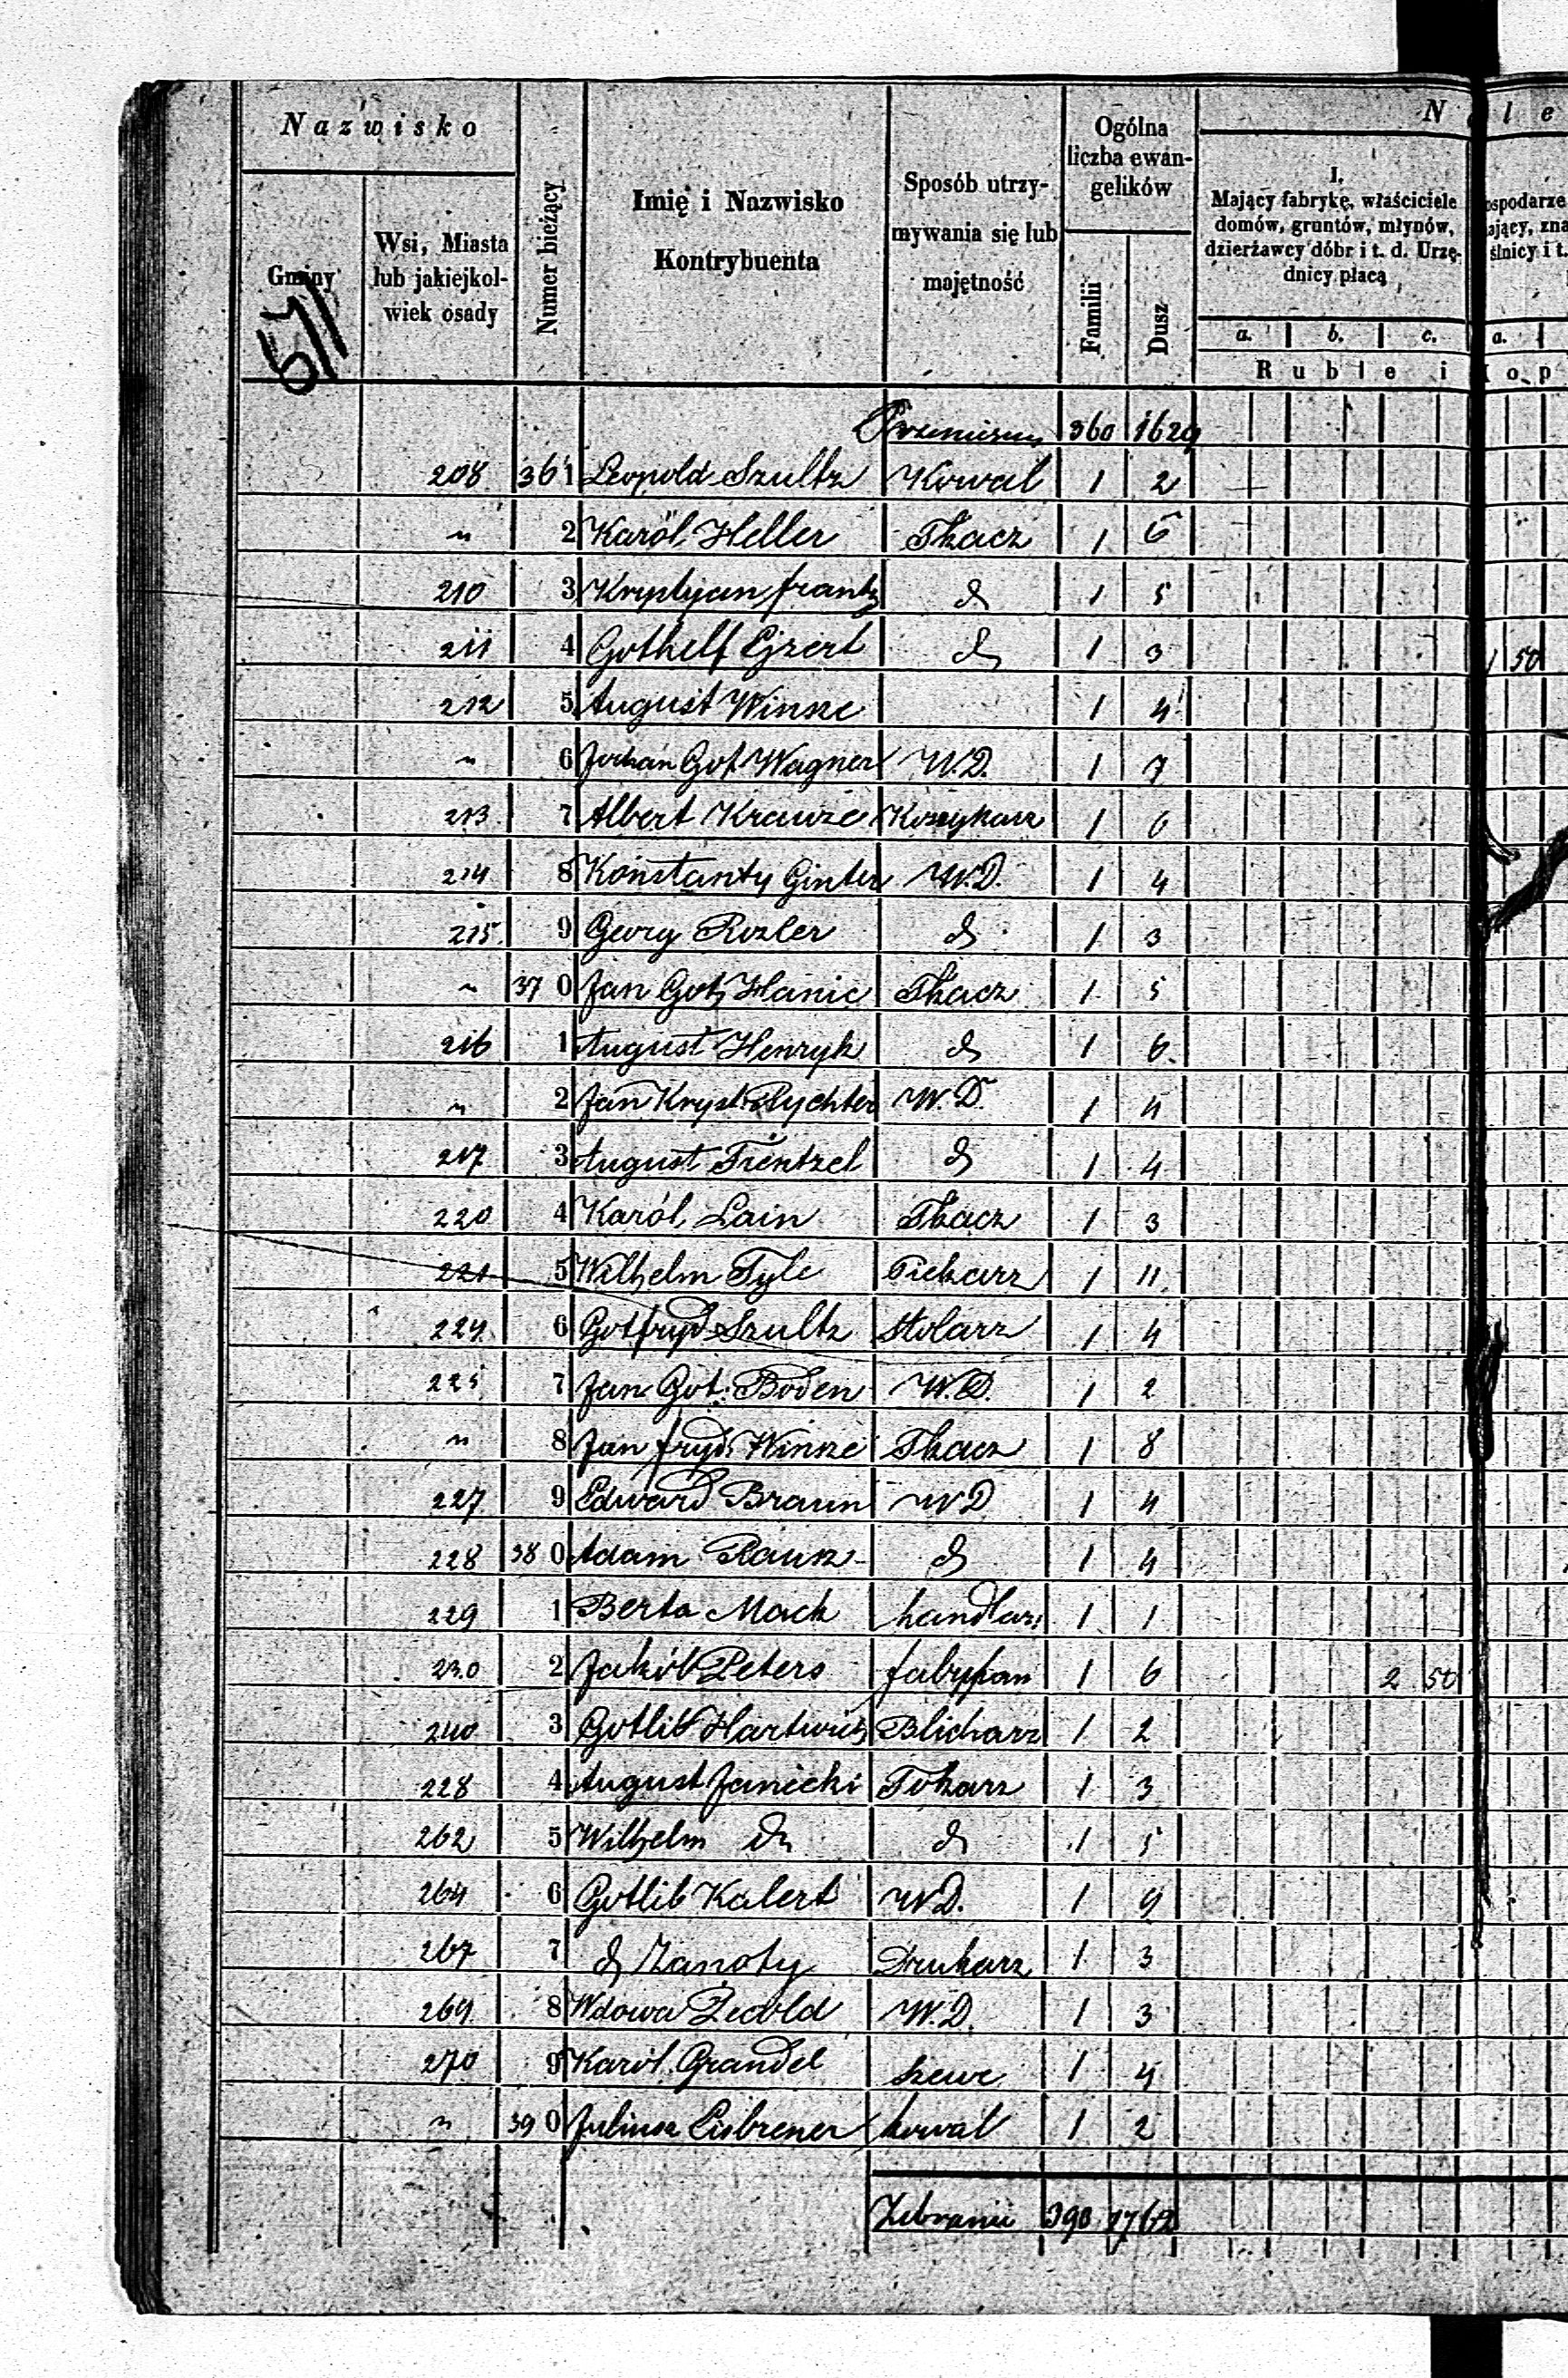 Nazwisko
Gminy
Wsi, Miasta
lub jakiejkol-
wiek osady
Numer bieżący
Imię i Nazwisko
Kontrybuenta
Sposób utrzy-
mywania się lub
majętność
Ogólna
liczba ewan-
gelików
Familii
Dusz
N l e
I.
Mający fabrykę, właściciele
domów, gruntów, młynów,
dzierżawcy dóbr i t. d. Urzę-
dnicy płacą
a. b. c. a.
Ruble i kop
ospodarze
ający, zna
ślnicy i t.
360 1629
208 361 Leopold Szultz Kowal 1 2
" 2 Karól Heller Tkacz 1 6
210 3 Krystyan frantz d 1 5
211 4 Gothelf Ejzert d 1 3 1 50
212 5 August Winsze 1 4
" 6 Johan Got Wagner W.D. 1 7
213 7 Albert Krauze Koszykarz 1 6
214 8 Konstanty Ginter W.D. 1 4
215 9 Georg Rozler d 1 3
" 370 Jan Got Hanic Tkacz 1 5
216 1 August Henryk d 1 6
" 2 Jan Kryst. Rychter W.D. 1 4
217 3 August Frentzel d 1 4
220 4 Karól Lain Tkacz 1 3
221 5 Wilhelm Tyle Piekarz 1 11
224 6 Gotfryd Szultz Stolarz 1 4
225 7 Jan Got. Boden W.D. 1 2
" 8 Jan fryd. Winsze Tkacz 1 8
227 9 Edward Braun WD 1 4
228 380 Adam Rausz d 1 4
229 1 Berta Mack handlarz 1 1
230 2 Jakób Peters fabrykan 1 6 2 50
240 3 Gotlib Hartwich Blicharz 1 2
228 4 August Janicki Tokarz 1 3
262 5 Wilhelm d d 1 5
264 6 Gotlib Kalert W.D. 1 9
267 7 d Zanoty Drukarz 1 3
269 8 Wdowa Pecold W.D. 1 3
270 9 Karól Grandel szewc 1 4
" 390 Juliusz Eisbrener kowal 1 2
Zebranie 390 1762